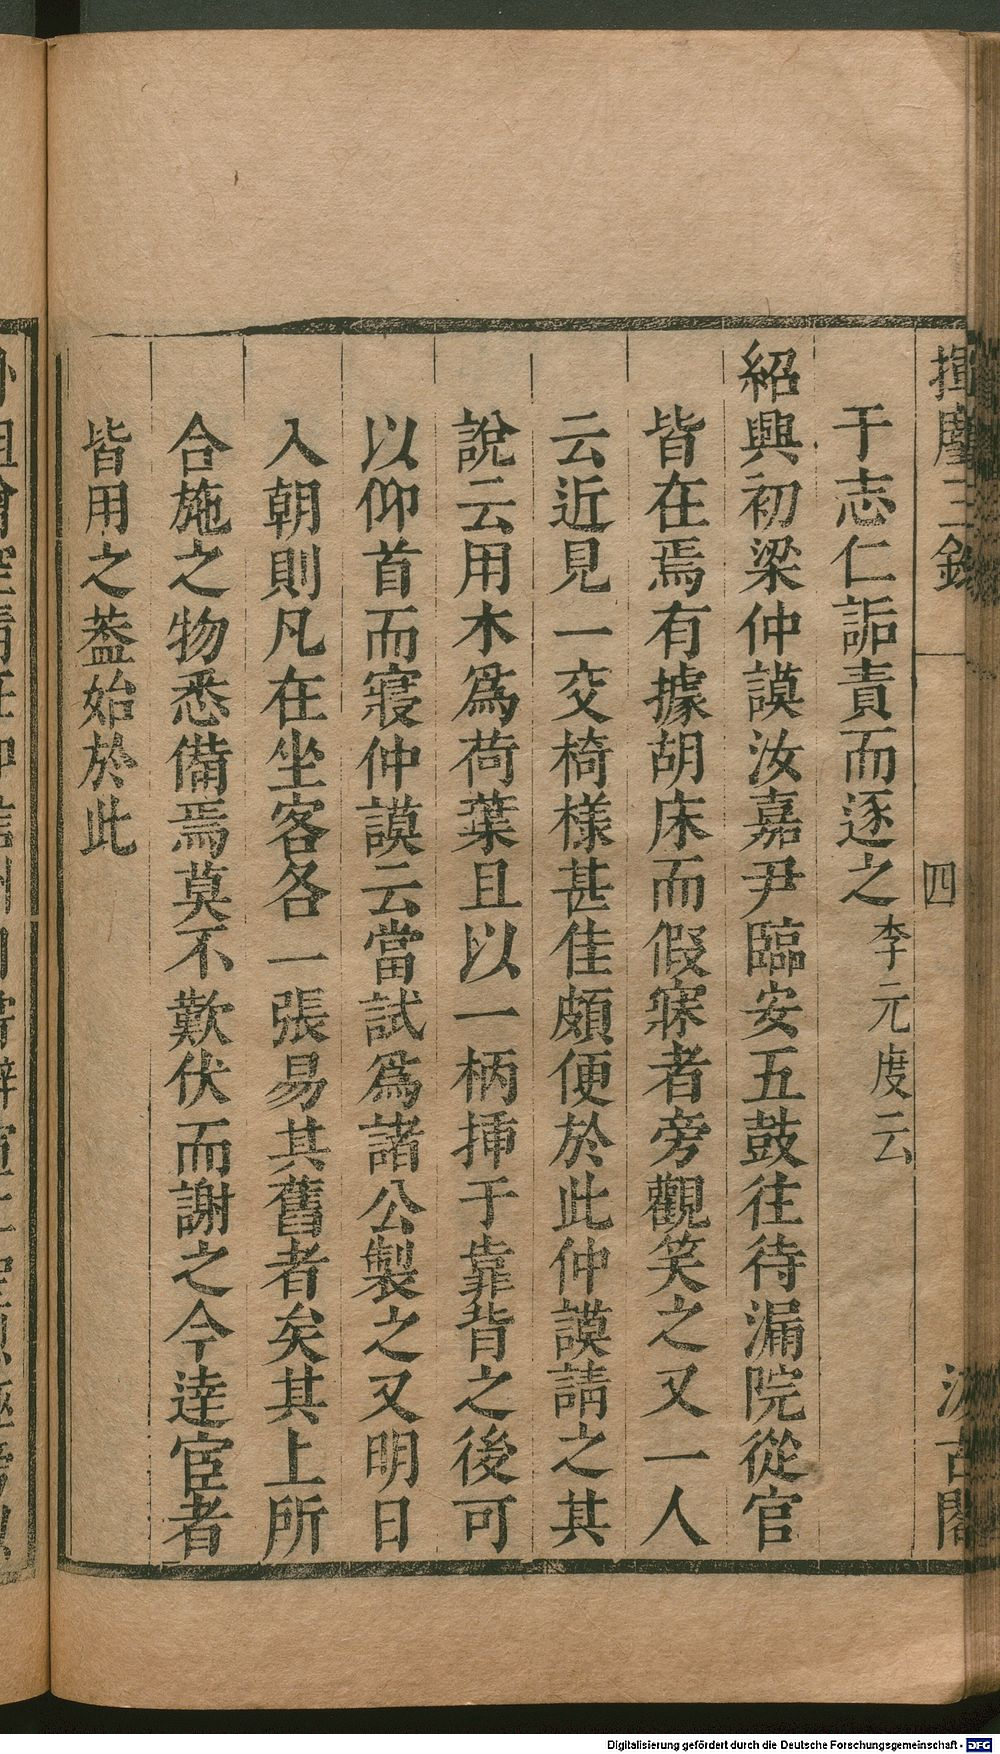 揮麈三錄
四
汲古閣
于志仁詬責而逐之李元度云
紹興初梁仲謨汝嘉尹臨安五鼓往待漏院從官
皆在焉有據胡床而假寐者旁觀笑之又一人
云近見一交椅樣甚佳頗便於此仲謨請之其
說云用木爲荷葉且以一柄揷于靠背之後可
以仰首而寢仲謨云當試爲諸公製之又明日
入朝則凡在坐客各一張易其舊者矣其上所
合施之物悉備焉莫不歎伏而謝之今達宦者
皆用之葢始於此
Digitalisierung gefördert durch die Deutsche Forschungsgemeinschaft - DFG